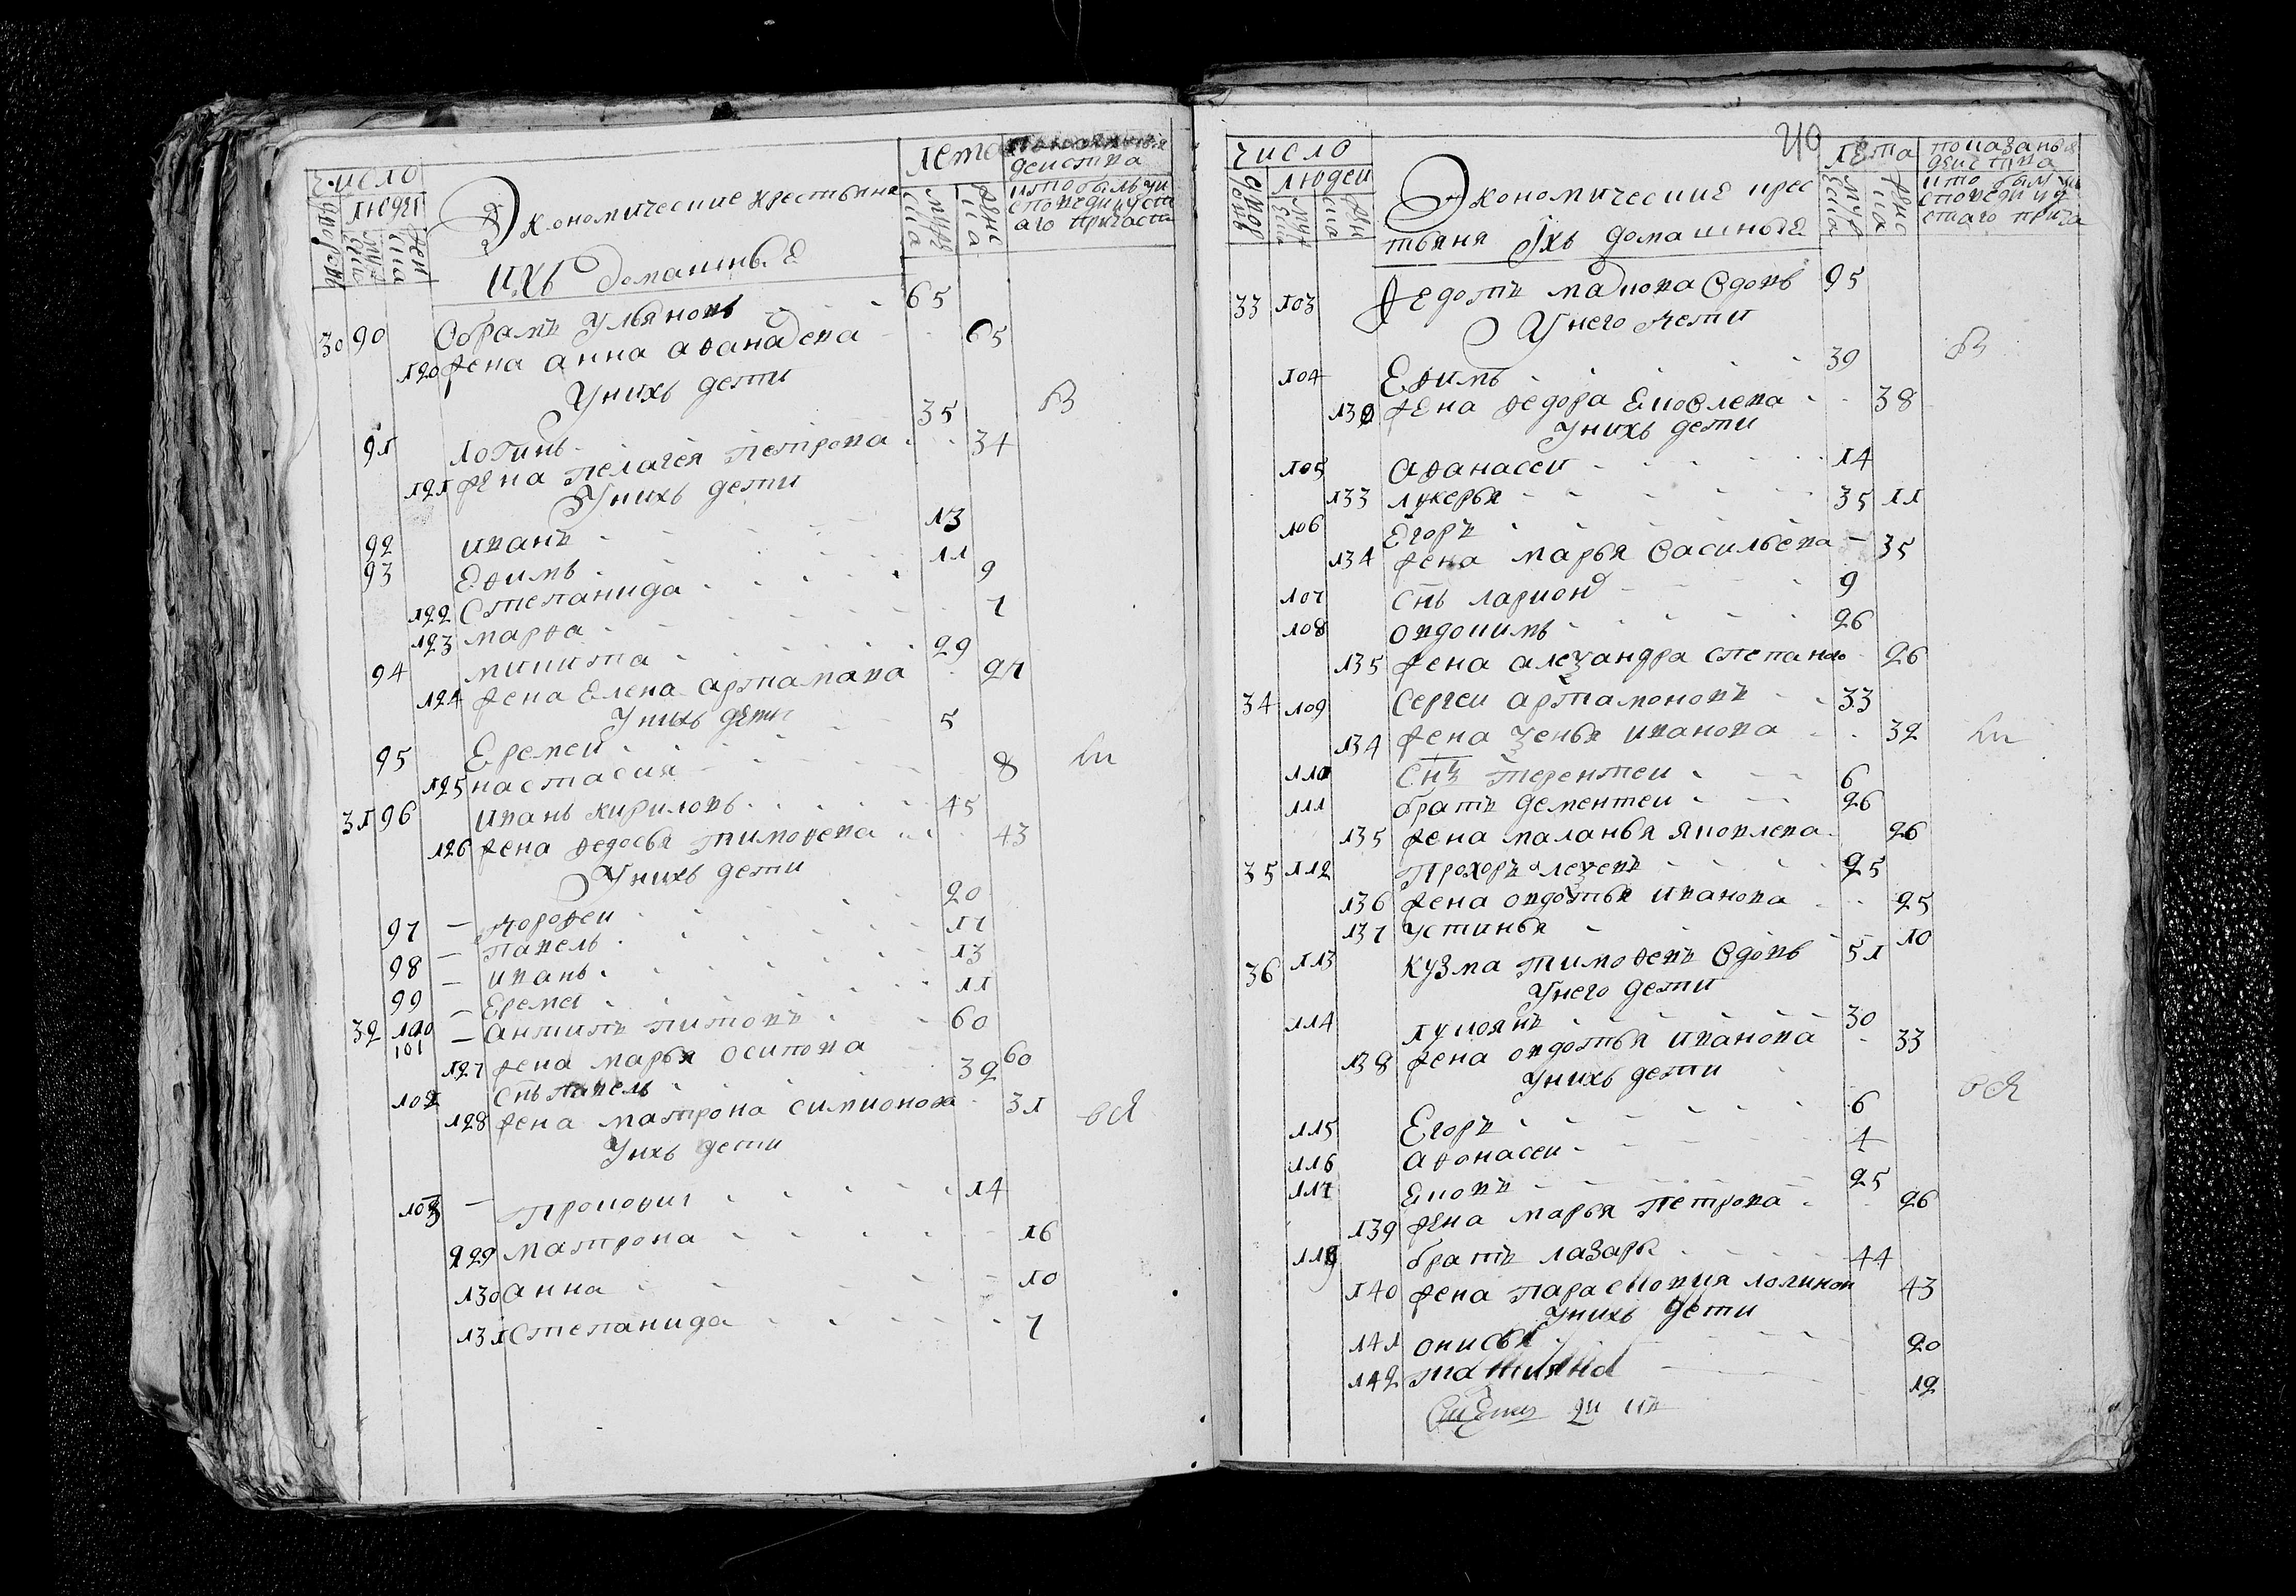 число
лета
показание
действа
дворовъ
людей
мужеска
женска
Экономические крестьяня
ихъ домашныѣ
мужеска
женска
кто былъ у и
споведи и у свя
таго причасти
30 90 Обрамъ Ульяновъ 65
120 жена анна афанасева 65
Унихъ дети
91 Логинъ 35
121 жена пелагея петрова 34
Унихъ дети
92 иванъ 13
93 Ефимъ 11
122 Степанида 9
123 марфа 7
94 микита 29
124 жена Елена артамава 27
Унихъ дети
95 Еремей 5
125 настасия 8
31 96 иванъ кириловъ 45
126 жена федосья тимофева 43
Унихъ дети
97 дорофеи 20
98 павелъ 17
99 иванъ 13
100 Еремеи 11
32 101 антипъ титовъ 60
127 жена марья осипова 60
102 Снъ павелъ 32
128 жена матрона симионова 31
Унхъ дети
103 Прокофи 14
129 матрона 16
130 анна 10
131 Степанида 7
40
число
дворовъ
людей
мужеска
женска
Экономическиѣ крес
тьяня Ихъ домашныѣ
лѣта
мужеска
женска
показаныя
действа
кто былъ у и
споведи и у
святаго прича
33 103 Федотъ Вдовъ 95
Унего дети
104 Ефимъ 39
132 жена федора Ековлева 38
Унихъ дети
105 афанасеи 14
133 лукерья 11
106 Егоръ 35
134 жена марья Васильева 35
107 Снъ ларион 9
108 овдокимъ 26
135 жена александра степанова 26
34 109 Сергеи артамоновъ 33
134 жена ксенья иванова 32
110 Снъ терентеи 6
111 братъ дементеи 26
135 жена маланья яковлева 26
35 112 Прохоръ алексевъ 25
136 жена овдотья иванова 25
137 устинья 10
36 113 кузма тимофевъ Вдовъ 51
Унего дети
114 лукоянъ 30
138 жена овдотья иванова 33
Унихъ дети
115 Егоръ 6
116 афонасеи 4
117 Ековъ 25
139 жена марья петрова 26
118 братъ лазарь 44
140 жена парасковия логинов 43
Унихъ дети
141 онисья 20
142 татияна 12